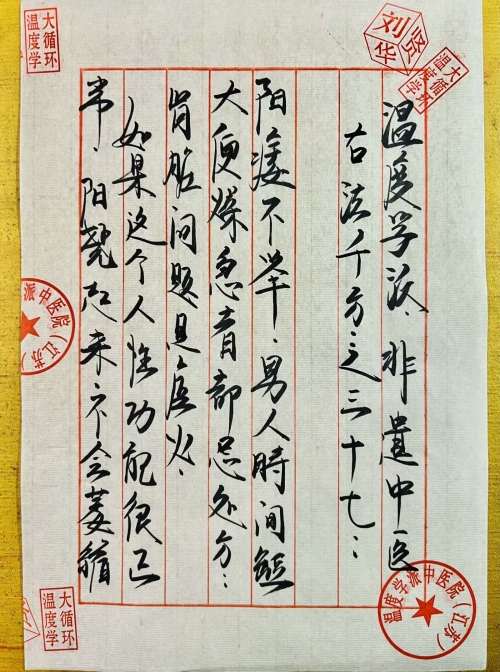 温度学派、非遗中医
古法千方：之三十七：
阳痿不举、男人時间短
大便燥急 处方：
肾脏问题是虚火、
如果这个人性功能很正
常、阳 起来：不会萎缩
大循环
温度学
刘贤华
大循环
温度学
派中医院（江苏）
大循环
温度学
温度学派中医院（江苏）